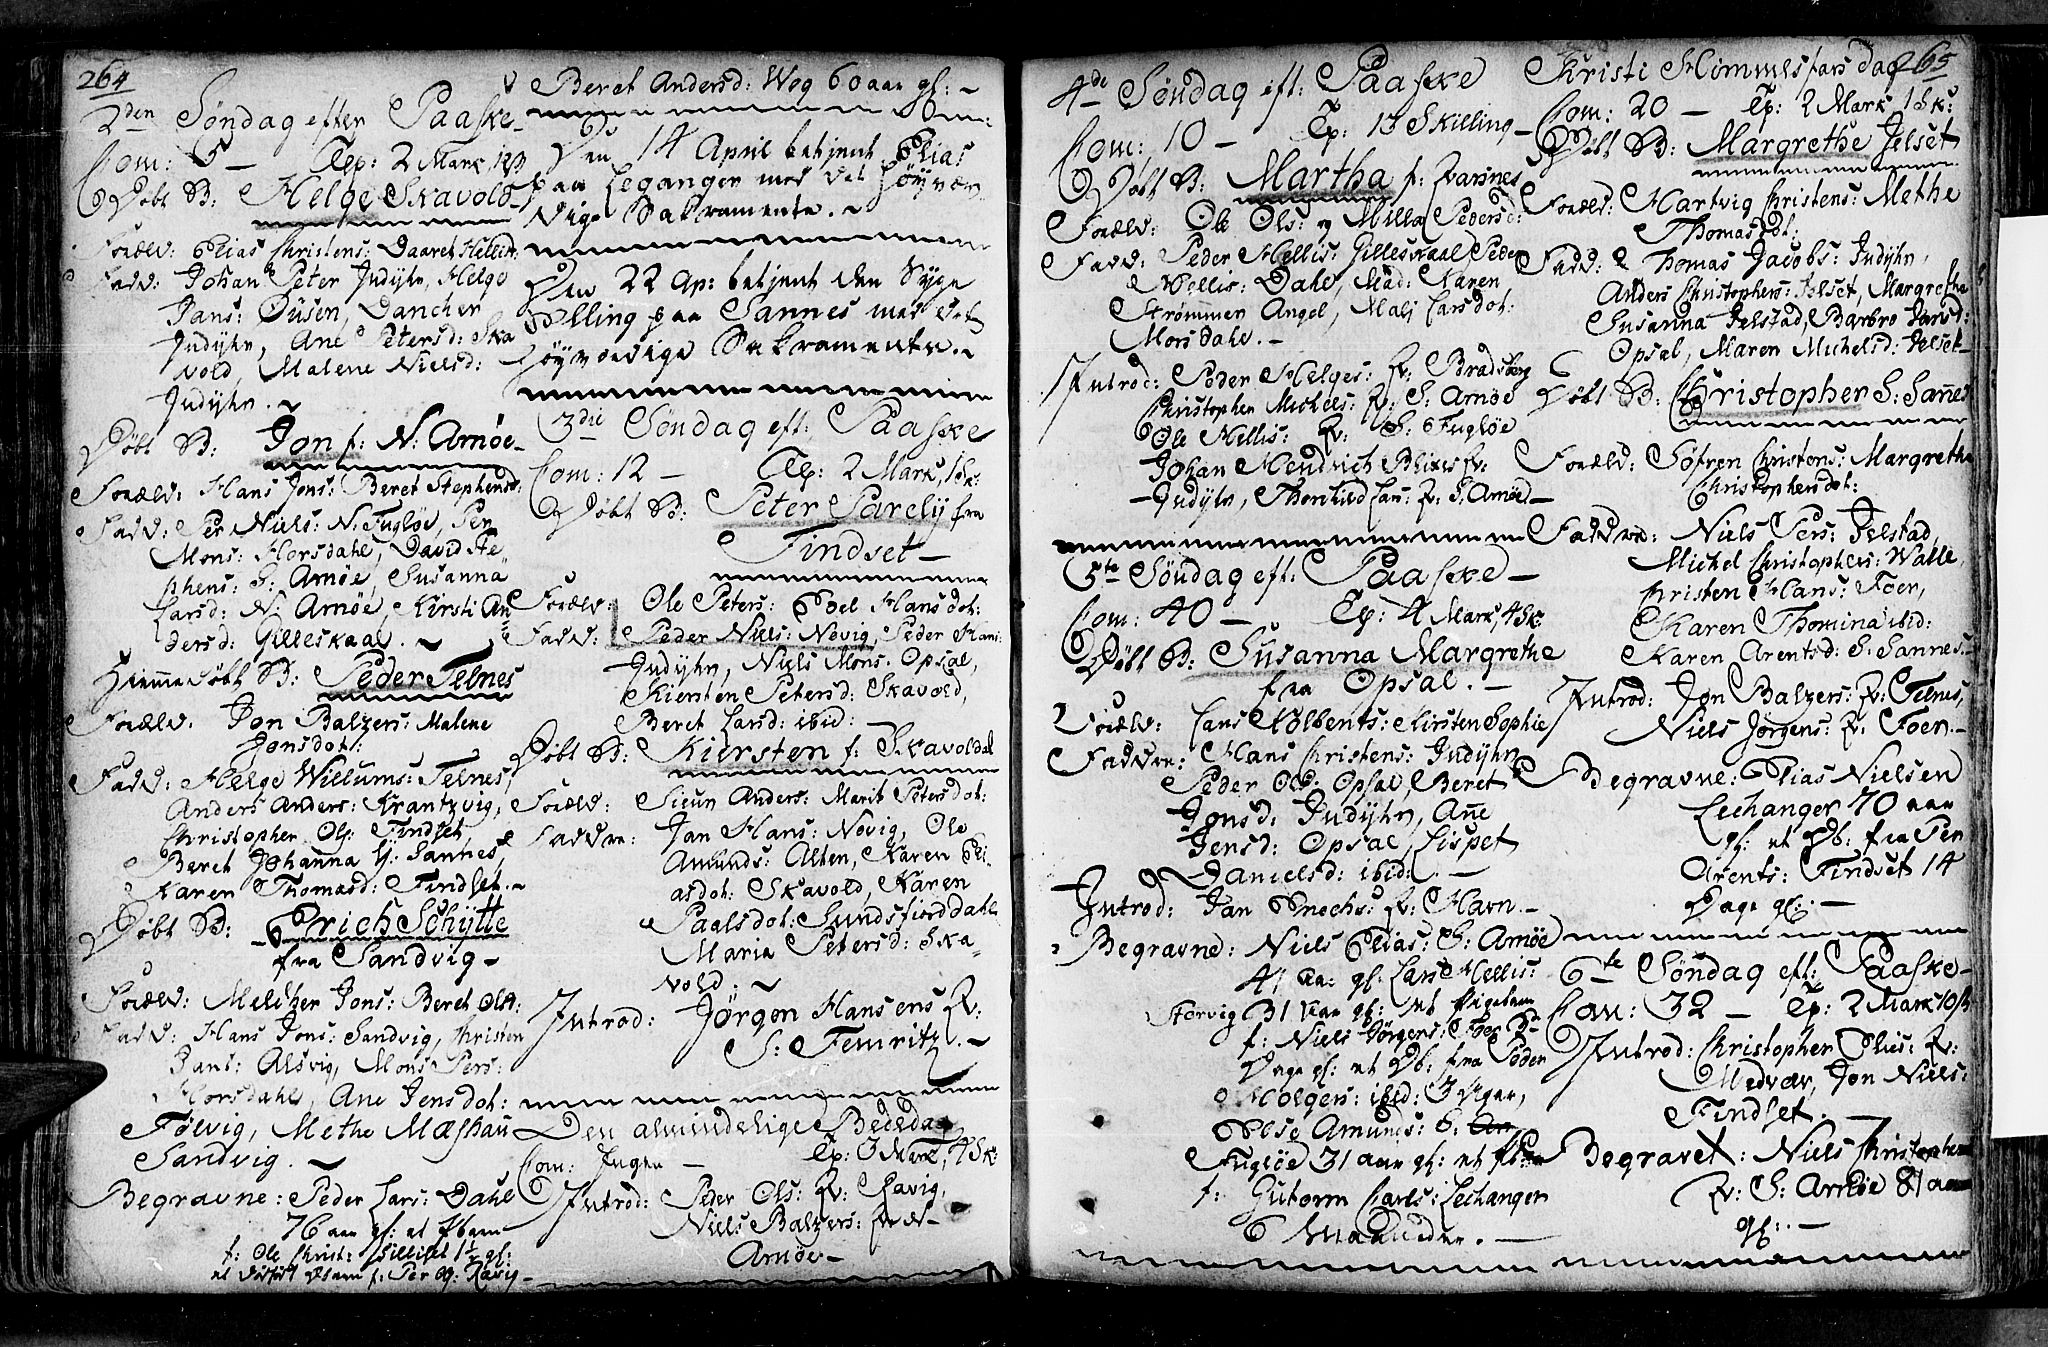 264
2den Søndag efter Paaske
Com: 6 — Tp: 2 Mark
Døbt B: Helge Skavold
Foræld: Elias Christens: Daaret Hellis
Fadd: Johan Peter Indyhr, Helge
Jans: Øusen, Dancher
Indyhr, Ane Petersd: Ska
vold, Malene Nielsd:
Indyhr.
Døbt B: Jon f: N: Arnøe
Foræld: Hans Jons: Beret Stephensd:
Fadd: Per Niels: N: Fugløe, Per
Mons: Horsdahl, David Ste
phens: S: Arnøe, Susanna
Larsd: N: Arnøe, Kirsti An
dersd: Gilleskaal.
Hiemmedøbt B: Peder Telnes
Foræld: Jon Balzers: Malene
Jonsdot:
Fadd: Helge Willums: Telnes,
Anders Anders: Krantzvig,
Christopher Ols: Findset,
Beret Johanna Hs: Sannes,
Karen Thomasd: Findset.
Døbt B: Erich Schytte
fra Sandvig —
Foræld: Melcher Jons: Beret Olsd:
Fadd: Hans Jons: Sandvig, Christen
Jans: Alsvig, Mons Pers:
Horsdahl, Ane Jensdot:
Følvig, Methe Mashau
Sandvig.
Begravne: Peder Lars: Dahl
76 aar gl: et Barn
f: Ole Christ: Gillisel 1½ gl:
et dødfødt Barn f: Per Og: Ravig
Beret Andersd: Wog 60 aar gl:
Den 14 April betjent Elias
paa Leganger med det Høyvær
dige Sakramente.
Den 22 Ap: betjent den Syge
Elling paa Sannes med det
Høyværdige Sakramente.
3die Søndag eft: Paaske
Com: 12 — Tp: 2 Mark, 1 Sk:
Døbt B: Peter Parely fra
Findset —
Foræld: Ole Peters: Boel Hansdot:
Fadd: Peder Niels: Nøvig, Peder Hans:
Indyhr, Niels Mons: Opsal,
Kiersten Petersd: Skavold,
Beret Larsd: ibid: —
Døbt B: Kiersten f: Skavoldal
Foræld: Siour Anders: Marit Petersdot:
Faddre: Jan Hans: Nøvig, Ole
Amunds: Alten, Karen Eli-
asdot: Skavold, Karen
Paalsdot: Sundsfiorddahl
Maria Petersd: Ska
vold.
Introd: Jørgen Hansens Qv:
S: Femritz.
Den almindelige Bededag
Com: Ingen — Tp: 3 Mark, 4 Sk:
Introd: Peder Ols: Qv: Ravig,
Niels Balzers: Qv: N-
Arnøe —
265
4de Søndag eft: Paaske
Com: 10 — Tp: 13 Skilling —
Døbt B: Martha f: Qvarsnes
Foræld: Ole Ols: og Milla Pedersd:
Fadd: Peder Hellis: Gilleskaal, Peder
Nellis: Dahl, Mad: Karen
Strømmer Angel, Malj Larsdot:
Morsdahl.
Introd: Peder Helges: Qv: Bradsberg
Christopher Michels: Qv: S: Arnøe
Ole Nellis: Qv: S: Fugløe
Johan Hendrich Blixes Qv:
Indyhr, Thorchild Lars: Qv: S: Arnøe —
5te Søndag eft: Paaske —
Com: 40 — Tp: 4 Mark, 4 Sk:
Døbt B: Susanna Margrethe
fra Opsal. —
Foræld: Lars Kolbents: Kirsten Sophie
Faddre: Hans Christens: Indyhr
Peder Ols: Opsal, Beret
Jonsd: Indyhr, Ane
Jensd: Opsal, Lispet
Danielsd: ibid: —
Introd: Jan Enochs: Qv: Havn. —
Begravne: Niels Elias: S: Arnøe
41 aar gl: Lars Hellis:
Storvig 31 aar gl: et Pigebarn
f: Niels Jørgens: Foer
Dage gl: et Db: fra Peder
Holgers: ibid: 3 Uger,
Else Amunds: S: Arn
Fugløe 31 aar gl: et
f: Gutorm Carls: Lechanger
6 Maaneder. —
Christi Himmelfarsdag
Com: 20 — Tp: 2 Mark 1 Sk:
Døbt B: Margrethe Jelset
Foræld: Hartvig Christens: Methe
Thomasdot:
Fadd: Thomas Jacobs: Indyhr,
Anders Christophers: Jelset, Margrethe
Susanna Jelstad, Barbro Jansd:
Opsal, Maren Michelsd: Jelset
Døbt B: Christopher S: Sannes
Foræld: Søfren Christens: Margrethe
Christophersdot:
Faddre: Niels Pers: Jelstad,
Michel Christophers: Walle,
Christen Hans: Foer,
Karen Thomina ibid:
Karen Arentsd: S: Sannes.
Introd: Jon Balzers: Qv: Telnes,
Niels Jørgens: Qv: Foer. —
Begravne: Elias Nielsen
Lechanger 70 aar
gl: et Db: fra Per
Arents: Findset 14
Dage gl: —
6te Søndag eft: Paaske —
Com: 32 — Tp: 2 Mark 10 sk
Introd: Christopher Elies: Qv:
Medvær, Jon Niels:
Findset. —
Begravet: Niels Christophers
Qv: S: Arnøe 81 aar
gl: —